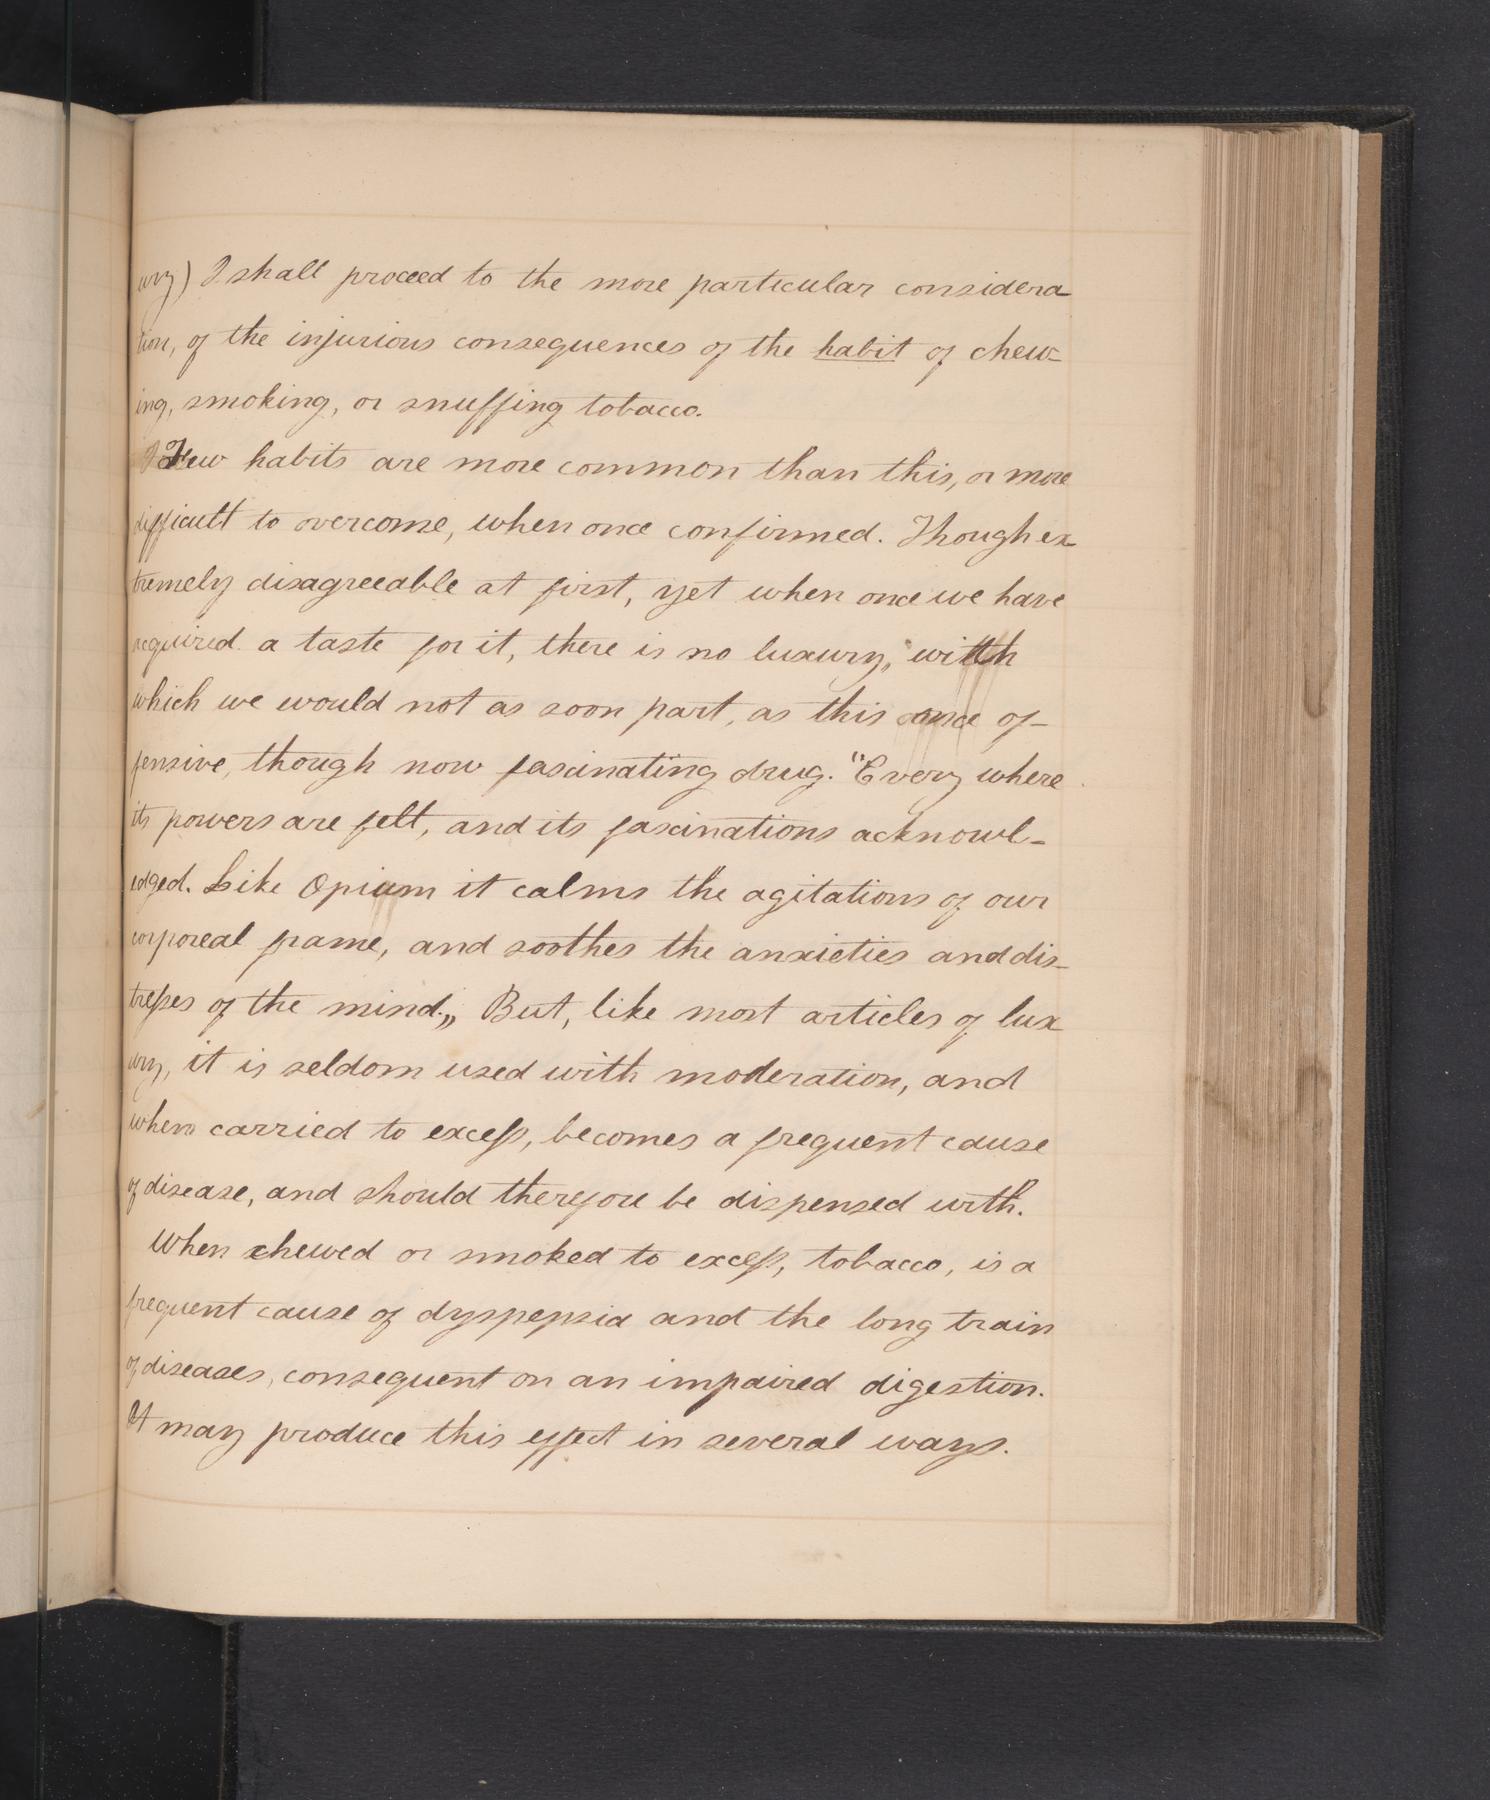 ury) I shall proceed to the more particular considera
tion, of the injurious consequences of the habit of chew=
ing, smoking, or snuffing tobacco.
Few habits are more common than this, or more
difficult to overcome, when once confirmed. Though ex
tremely disagreeable at first, yet when once we have
acquired a taste for it, there is no luxury, with
which we would not as soon part, as this once of-
fensive, though now fascinating drug. "Every where
its powers are felt, and its fascinations acknowl-
edged. Like Opium it calms the agitations of our
corporeal frame, and soothes the anxieties and dis-
tresses of the mind.„ But, like most articles of lux
ury, it is seldom used with moderation, and
when carried to excess, becomes a frequent cause
of disease, and should therefore be dispensed with.
When chewed or smoked to excess, tobacco, is a
frequent cause of dyspepsia and the long train
of diseases, consequent on an impaired digestion.
It may produce this effect in several ways.